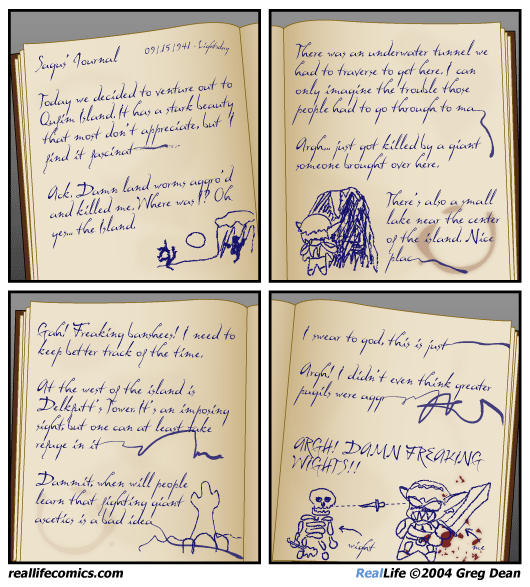 Sagus' Journal
09/15/941 - Lightsday
Today we decided to venture out to
Qufim Island. It has a stark beauty
that most don't appreciate, but I
find it fascinat
Ack. Damn land worms aggro'd
and killed me. Where was I? Oh
yes... the Island.
There was an underwater tunnel we
had to traverse to get here. I can
only imagine the trouble those
people had to go through to ma
Argh... just got killed by a giant
someone brought over here.
There's also a small
lake near the center
of the island. Nice
plac
Gah! Freaking banshees! I need to
keep better track of the time.
At the west of the island is
Delkfutt's Tower. It's an imposing
sight, but one can at least take
refuge in it
Dammit, when will people
learn that fighting giant
ascetics is a bad idea
I swear to god, this is just
Argh! I didn't even think greater
pugils were aggr
ARGH! DAMN FREAKING
WIGHTS!!
wight
me
reallifecomics.com
RealLife ©2004 Greg Dean